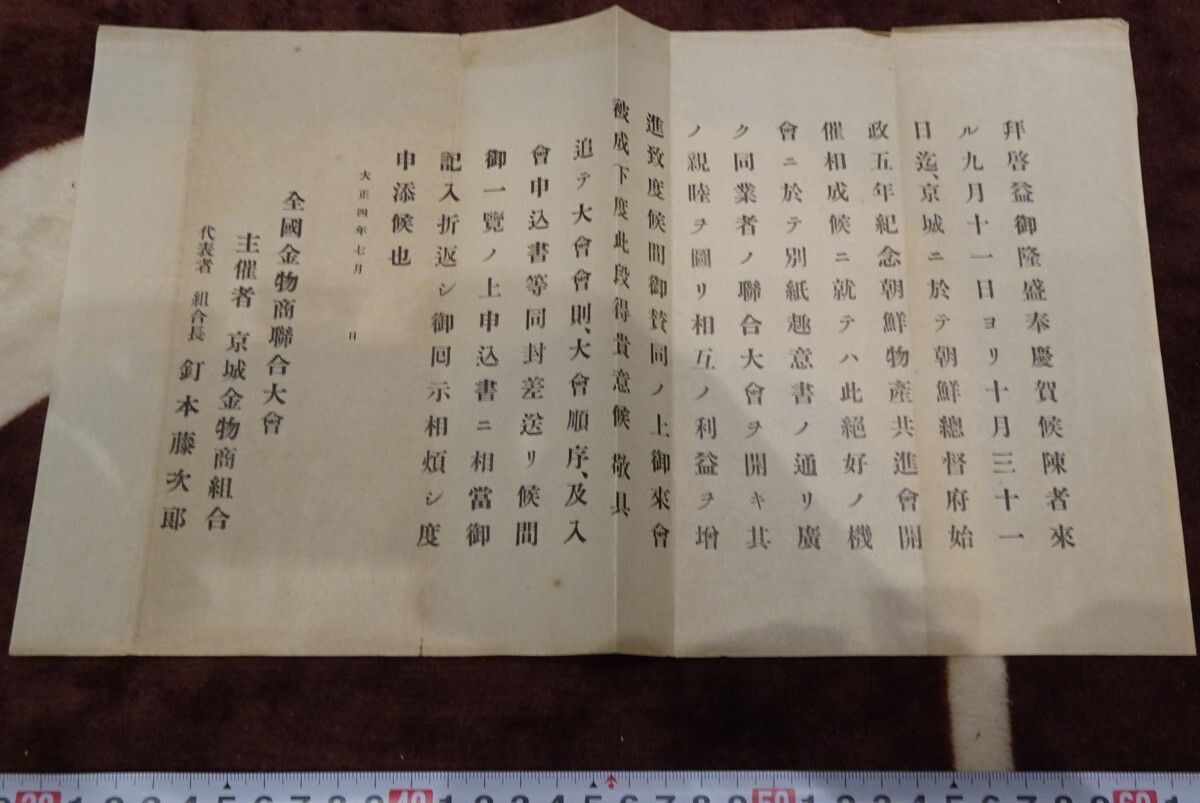 拜啓益御隆盛奉慶賀候陳者來
ル九月十一日ヨリ十月三十一
日迄、京城ニ於テ朝鮮總督府始
政五年紀念朝鮮物產共進會開
催相成候ニ就テハ此絕好ノ機
會ニ於テ別紙趣意書ノ通リ廣
ク同業者ノ聯合大會ヲ開キ其
ノ親睦ヲ圖リ相互ノ利益ヲ增
進致度候間御賛同ノ上御來會
被成下度此段得貴意候 敬具
追テ大會會則、大會順序、及入
會申込書等同封差送リ候間
御一覽ノ上申込書ニ相當御
記入折返シ御囘示相煩シ度
申添候也
大正四年七月 日
全國金物商聯合大會
主催者 京城金物商組合
代表者 組合長 釘本藤次郞
30 1 2 3 4 5 6 7 8 9 40 1 2 3 4 5 6 7 8 9 50 1 2 3 4 5 6 7 8 9 60